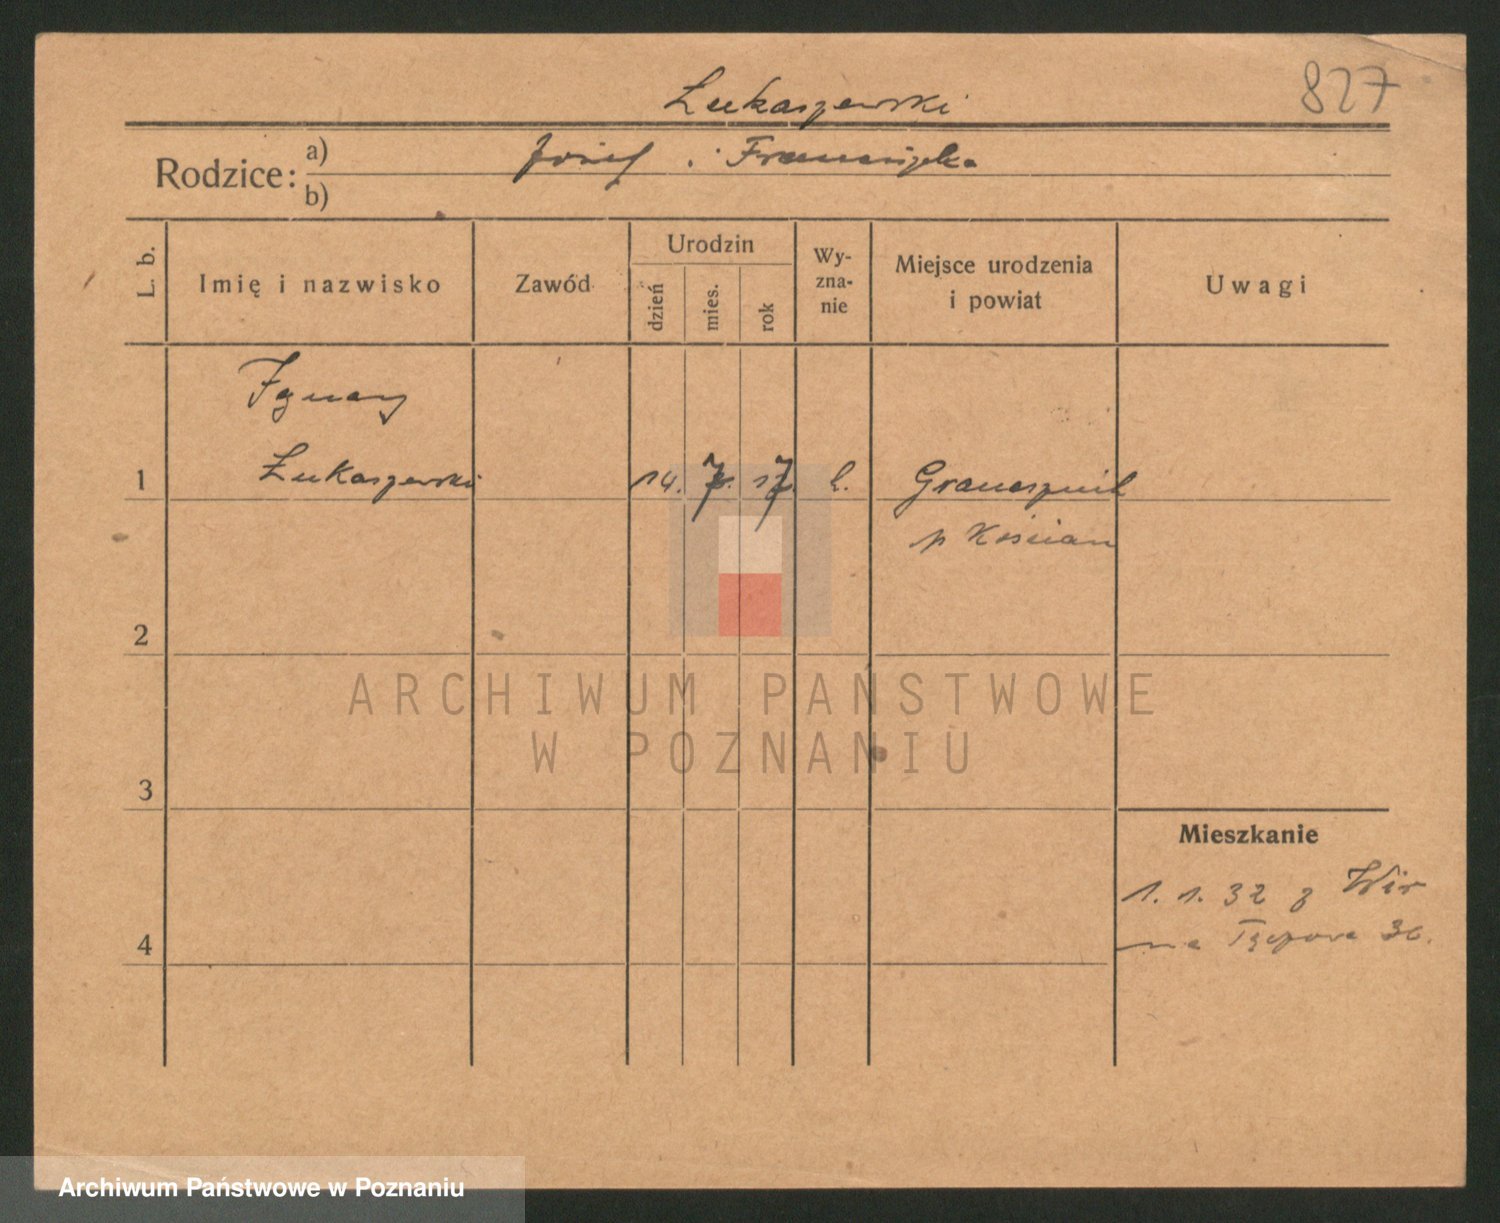 Łukaszewski
827
Rodzice: a) Józef i Franciszka
b)
L. b.
Imię i nazwisko
Zawód
Urodzin
dzień
mies.
rok
Wy-
zna-
nie
Miejsce urodzenia
i powiat
Uwagi
Ignacy
1 Łukaszewski 14. 7. 17.
p Kościan
2
3
Mieszkanie
1. 1. 32 z Wir
4 na 
ARCHIWUM PAŃSTWOWE
W POZNANIU
Archiwum Państwowe w Poznaniu